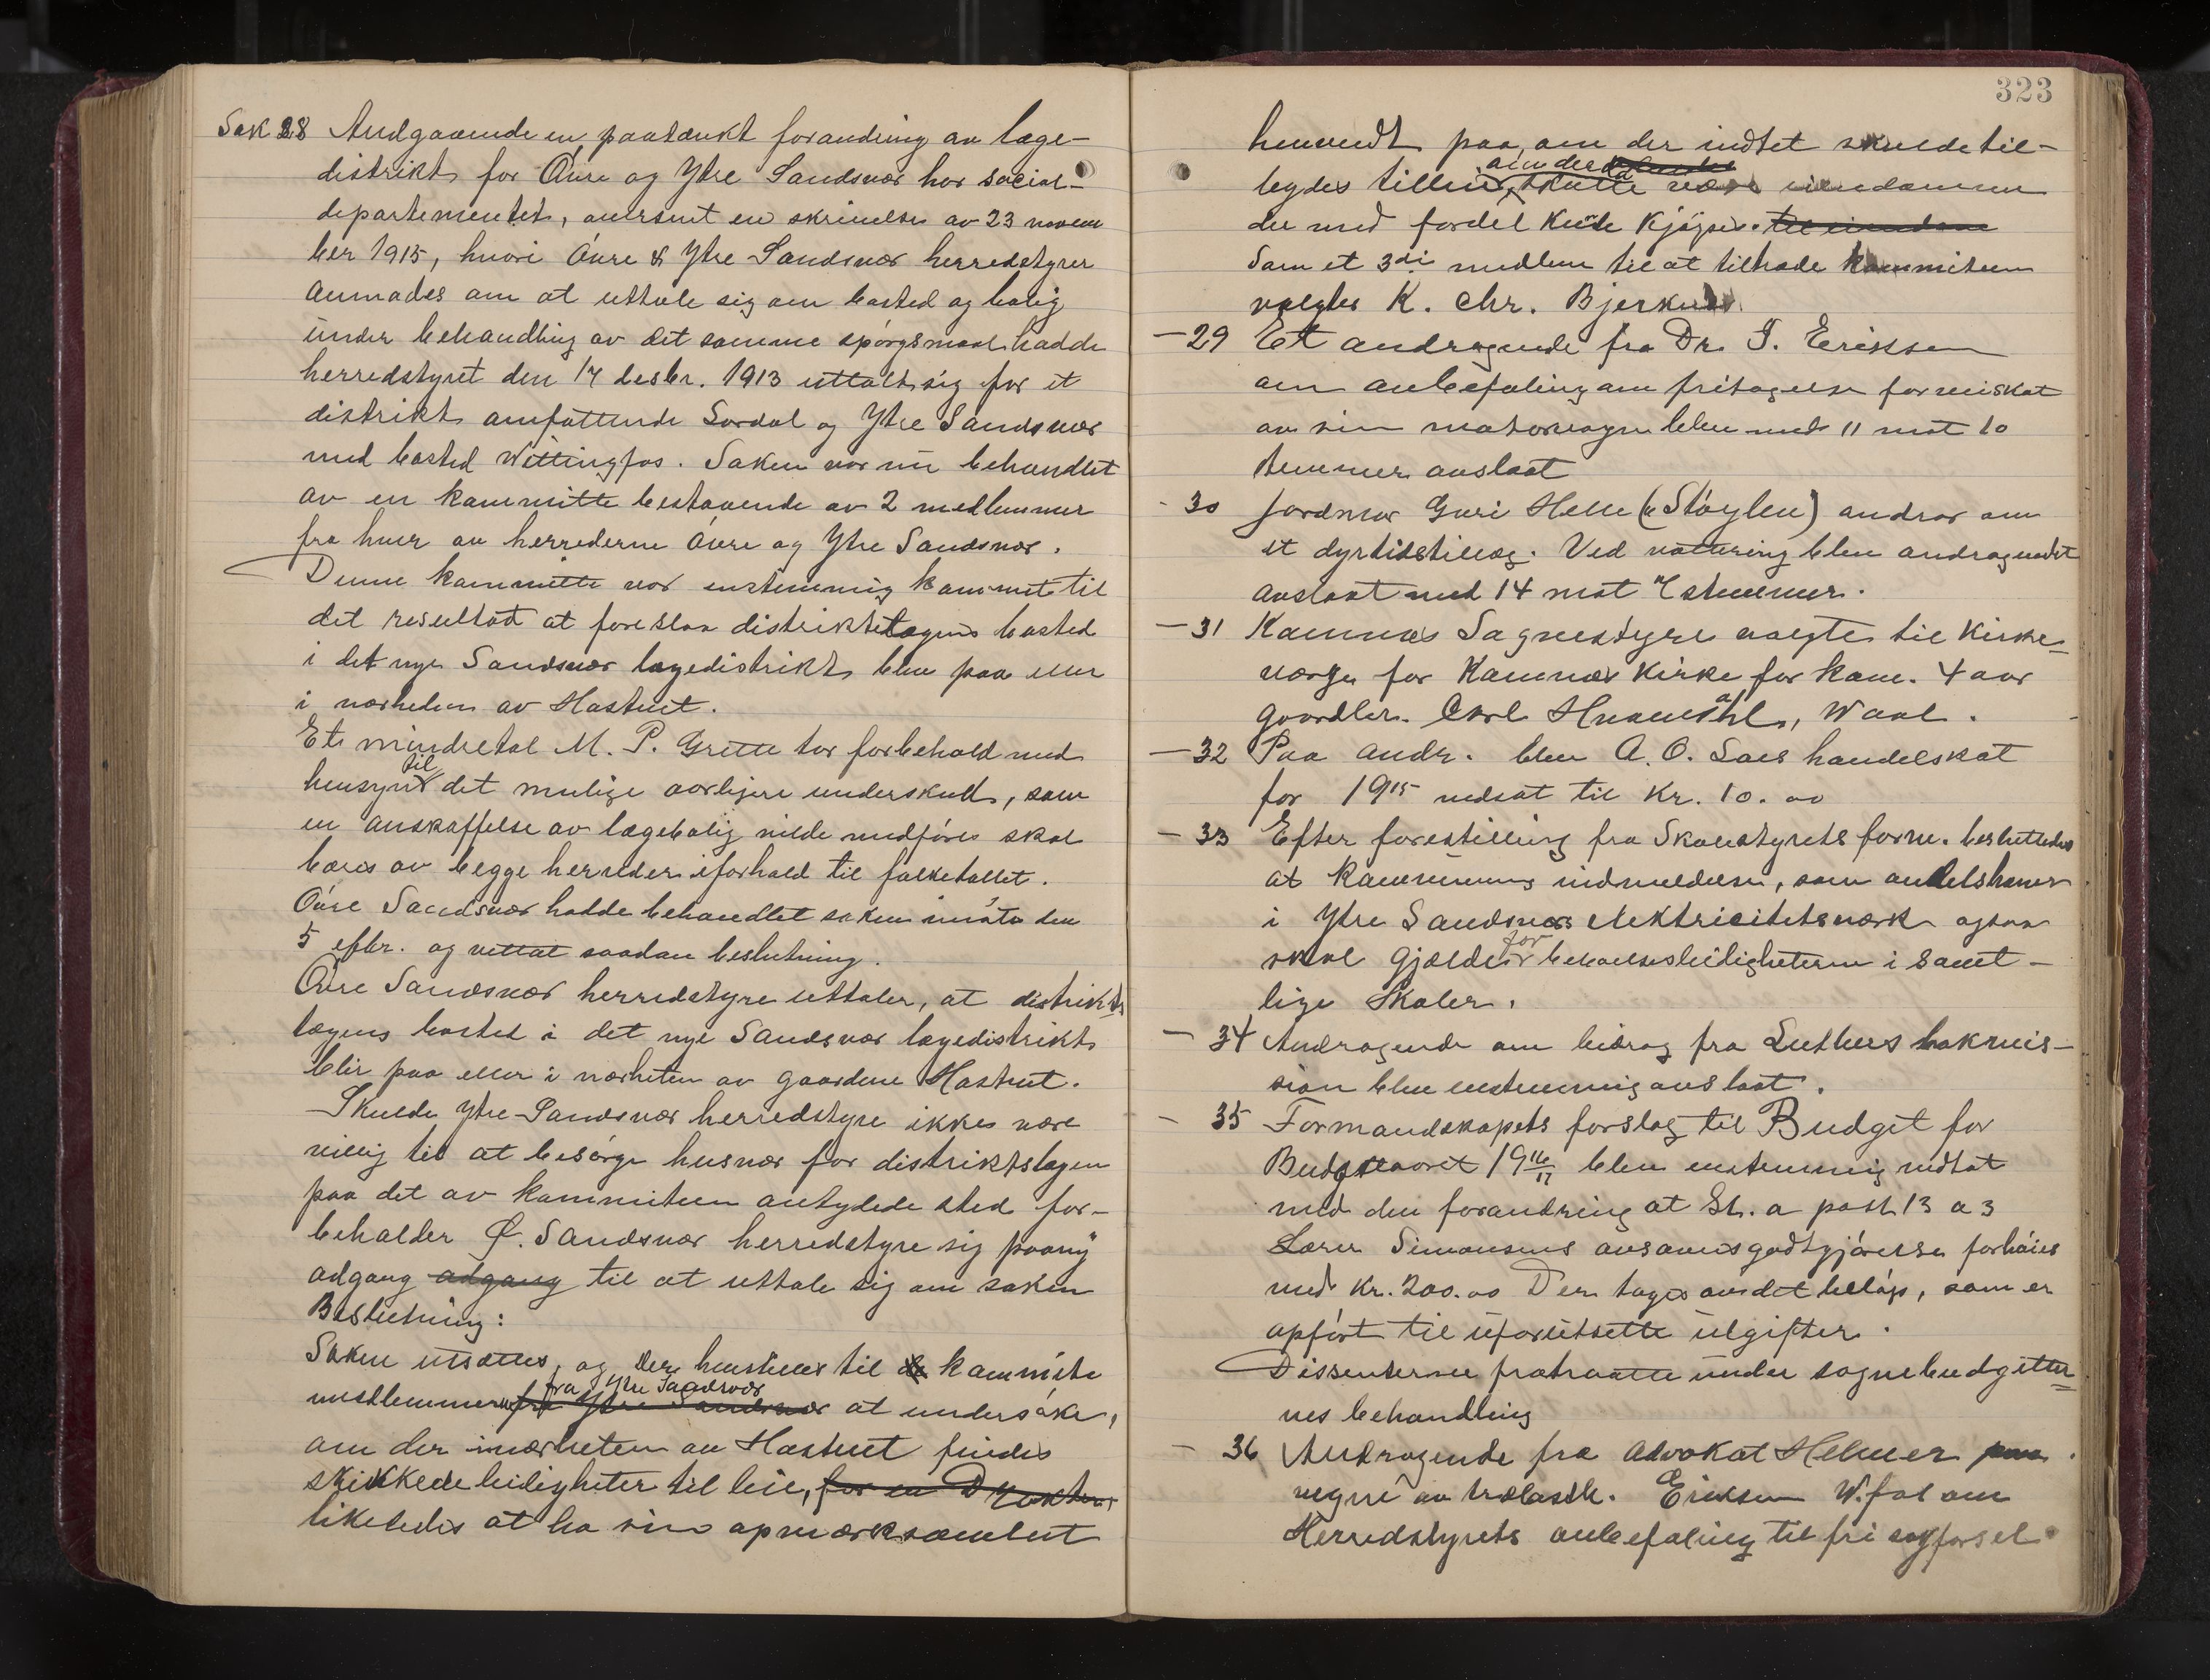 Sak 28 Andgaaende en paatænkt forandring av læge-
distrikt for Øvre og Ytre Sandsvær har social-
departementet, oversent en skrivelse av 23 novem
ber 1915, hvori Øvre & Ytre Sandsvær herredstyrer
anmodes om at uttale sig om bosted og bolig
under behandling av det samme spørgsmaal hadde
herredstyret den 17 desbr. 1913 uttalt sig for et
distrikt omfattende Lardal og Ytre Sandsvær
med bosted Wittingfos. Saken var nu behandlet
av en kommitte bestaaende av 2 medlemmer
fra hver av herrederne Øvre og Ytre Sandsvær.
Denne kommitte var enstemmig kommet til
det resultat at foreslaa distriktslægens bosted
i det nye Sandsvær lægedistrikt blev paa eller
i nærheden av Hostvet.
Et mindretal M. P. Grette tar forbehold med
hensyn til det mulige aarligere underskudd, som
en anskaffelse av lægebolig vilde medføre skal
bæres av begge herreder iforhold til folketallet.
Øvre Sandsvær hadde behandlet saken i møte den
5 efbr. og vettat saadan beslutning.
Øvre Sandsvær herredstyre uttaler, at distrikts
lægens bosted i det nye Sandsvær lægedistrikt
blir paa eller i nærheten av gaardene Hostvet.
Skulde Ytre Sandsvær herredstyre ikke være
villig til at besørge husvær for distriktslægen
paa det av kommiteen antydede sted for-
beholder Ø. Sandsvær herredstyre sig paany
adgang adgang til at uttale sig om saken
Beslutning:
Saken utsættes, og der henstilles til de kommite
medlemmer fra Ytre Sandsvær fra Ytre Sandsvær at undersøke,
om der i nærheten av Hostvet findes
skikkede leiligheter til leie, for en Doktor,
likeledes at ha sin opmærksomhet
323
henvendt paa, om der indtet skulde til-
bydes tilleie, om der skulde være eiendommer
der med fordel kunde kjøpes. til eiendom
Som et 3di medlem til at tiltræde kommiteen
valgtes K. Chr. Bjerknes.
- 29 Et andragende fra Dr. J. Eriksen
om anbefaling om fritagelse for veiskat
av sin motorvogn blev med 11 mot 10
stemmer avslaat
- 30 Jordmor Guri Helle (Støylen) andrar om
et dyrtidstillæg. Ved votering blev andragendet
avslaat med 14 mot 7 stemmer.
- 31 Komnes Sognestyre valgte til Kirke-
værge for Komnes Kirke for kom. 4 aar
gaardbr. Carl Hvaal, Waal.
- 32 Paa andr. blev A. O. Laes handelskat
for 1915 nedsat til Kr. 10.00
- 33 Efter forestilling fra Skolestyrets form. besluttedes
at kommunens indmeldelse, som andelshaver
i Ytre Sandsvær elektricitetsværk ogsaa
skal gjælde for beboelsesleiligheterne i samt-
lige Skoler.
- 34 Andragende om bidrag fra Luthers bokmis-
sion blev enstemmig avslaat.
- 35 Formandskapets forslag til Budget for
Budgetaaret 1916/17 blev enstemmig vedtat
med den forandring at St. a post 13 a 3
Lærer Simonsens avsavnsgodtgjørelse forhøies
med kr. 200.00 Den tages av det beløp, som er
opført til uforutsette utgifter.
Dissenterne fratraatte under sognebudgetter
nes behandling
- 36 Andragende fra Advokat Helmer paa
vegne av trælastk. Eriksen W.fos om
Herredstyrets anbefaling til fri sagførsel